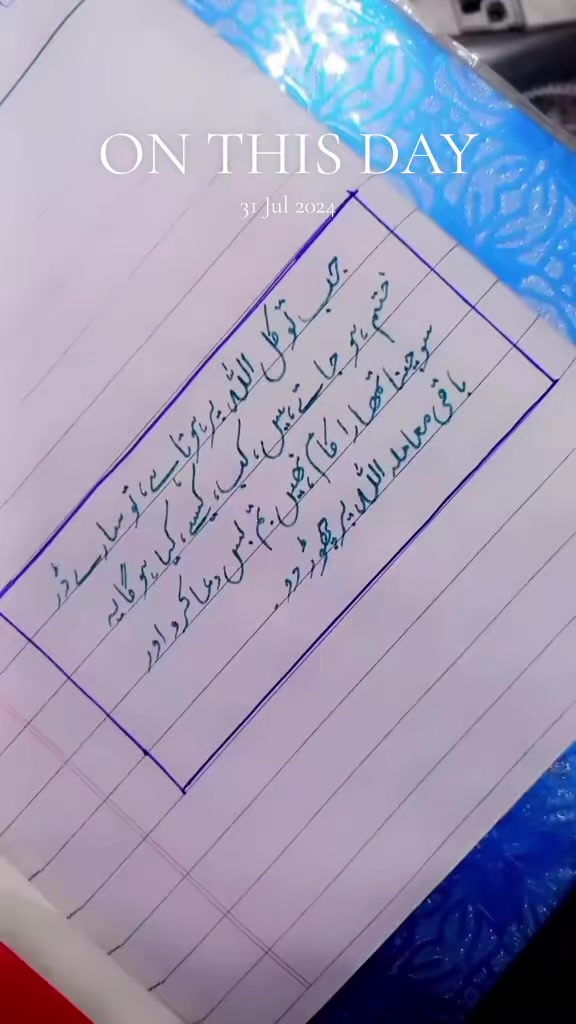 ON THIS DAY
31 Jul 2024
جب توکل اللہ پر ہوتا ہے، تو سارے ڈر
ختم ہو جاتے ہیں، کب، کیسے، کیا ہو گا یہ
سوچنا تمھارا کام نہیں۔ تم بس دعا کرو اور
باقی معاملہ اللہ پر چھوڑ دو۔